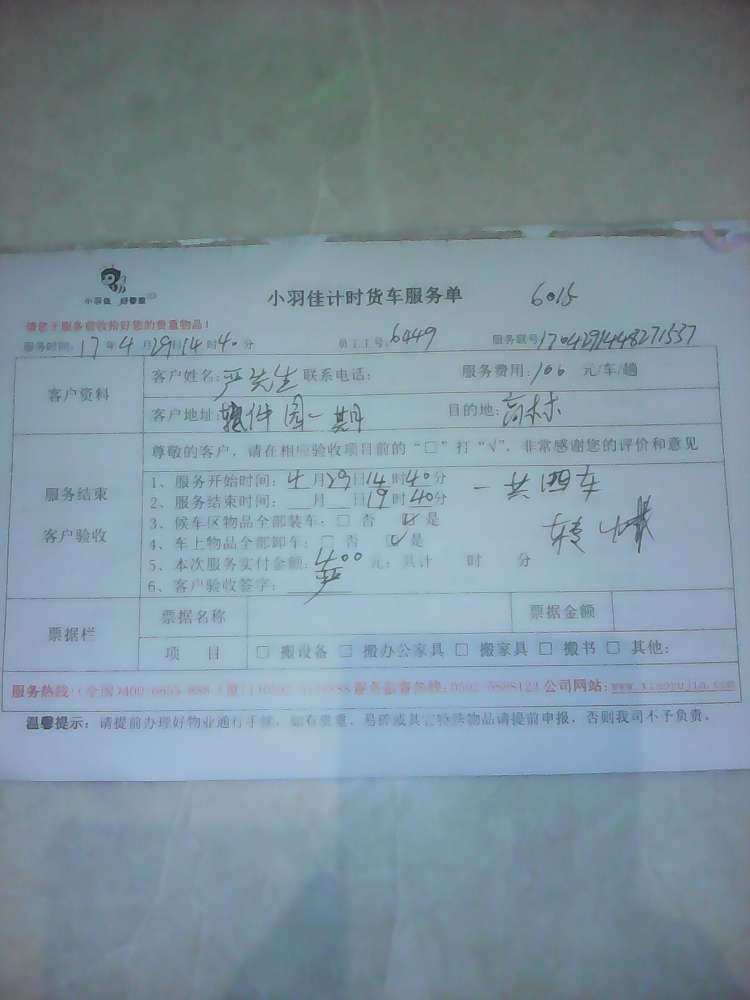 小羽佳 好管家
小羽佳计时货车服务单 6015
请您于服务前收拾好您的贵重物品!
服务时间: 17 年 4 月 29 日 14 时 40 分 员工工号: 6449 服务联号 1704291448271537
客户资料
客户姓名: 严先生 联系电话: 服务费用: 100 元/车/趟
客户地址: 软件园一期 目的地: 高林
服务结束
客户验收
尊敬的客户，请在相应验收项目前的“□”打“√”，非常感谢您的评价和意见
1、服务开始时间: 4 月 29 日 14 时 40 分 一共四车
2、服务结束时间: 月 日 19 时 40 分
3、候车区物品全部装车，□ 否 ☑ 是
4、车上物品全部卸车: □ 否 ☑ 是
5、本次服务实付金额: 400 元: 共计 时 分
6、客户验收签字: 严
票据栏
票据名称 票据金额
项 目 □ 搬设备 □ 搬办公家具 □ 搬家具 □ 搬书 □ 其他:
公司网站: www.xiaoyujia.com
温馨提示: 请提前办理好物业通行手续，如有贵重、易碎或其它特殊物品请提前申报，否则我司不予负责。